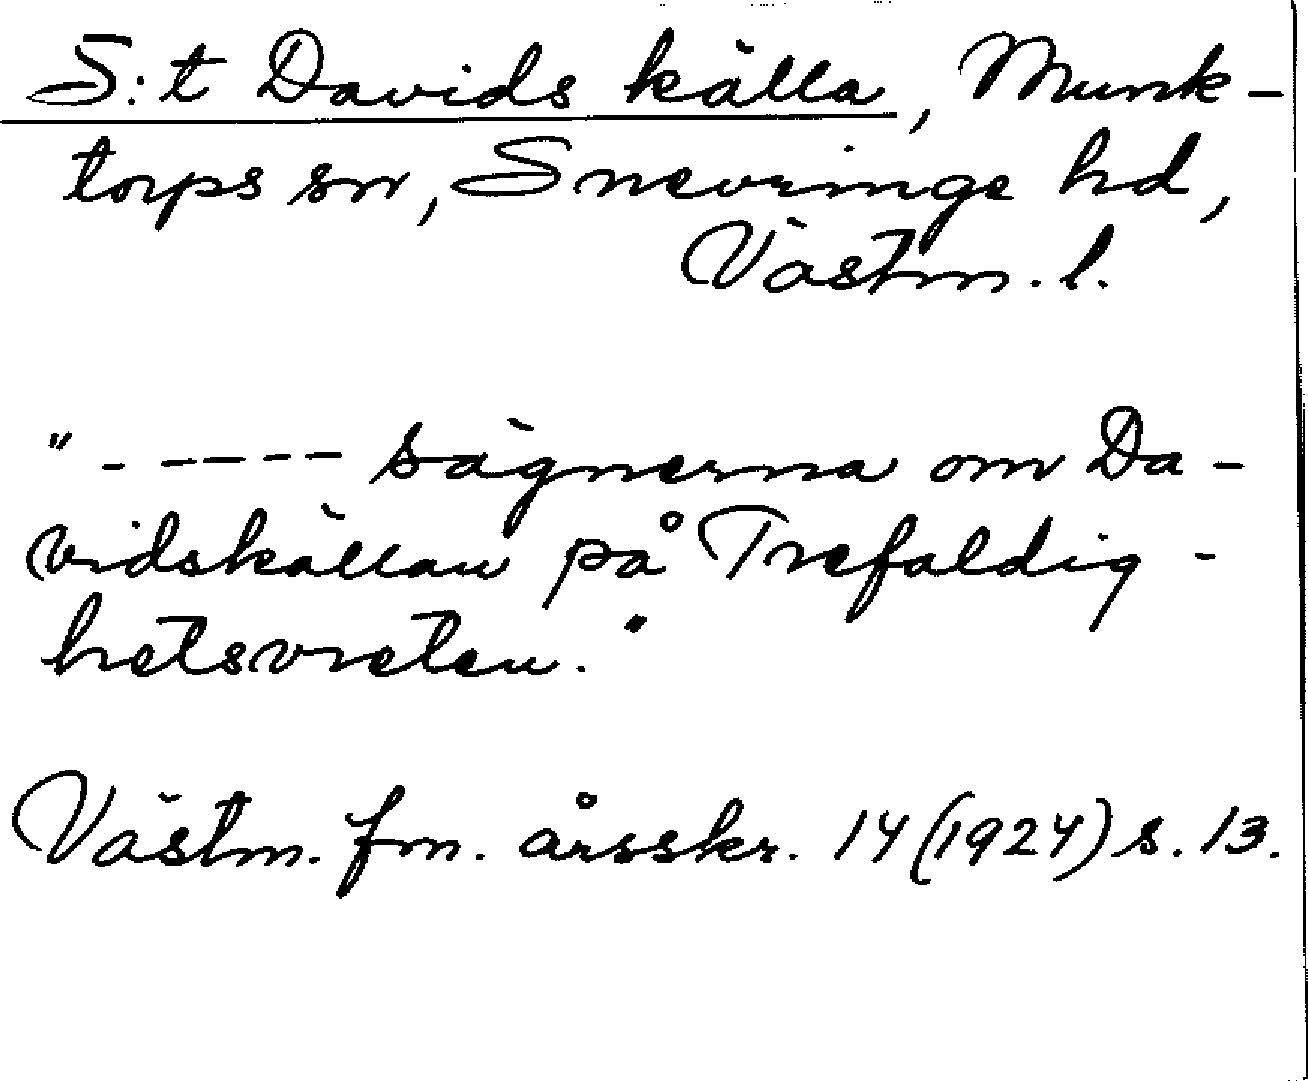 S:t Davids källa, Munk-
torps sn, Snevringe hd,
Västm. l.
"- - - - - sägnerna om Da-
vidskällan på Trefaldig-
hetsvreten."
Västm. fm. årsskr. 14 (1924) s. 13.